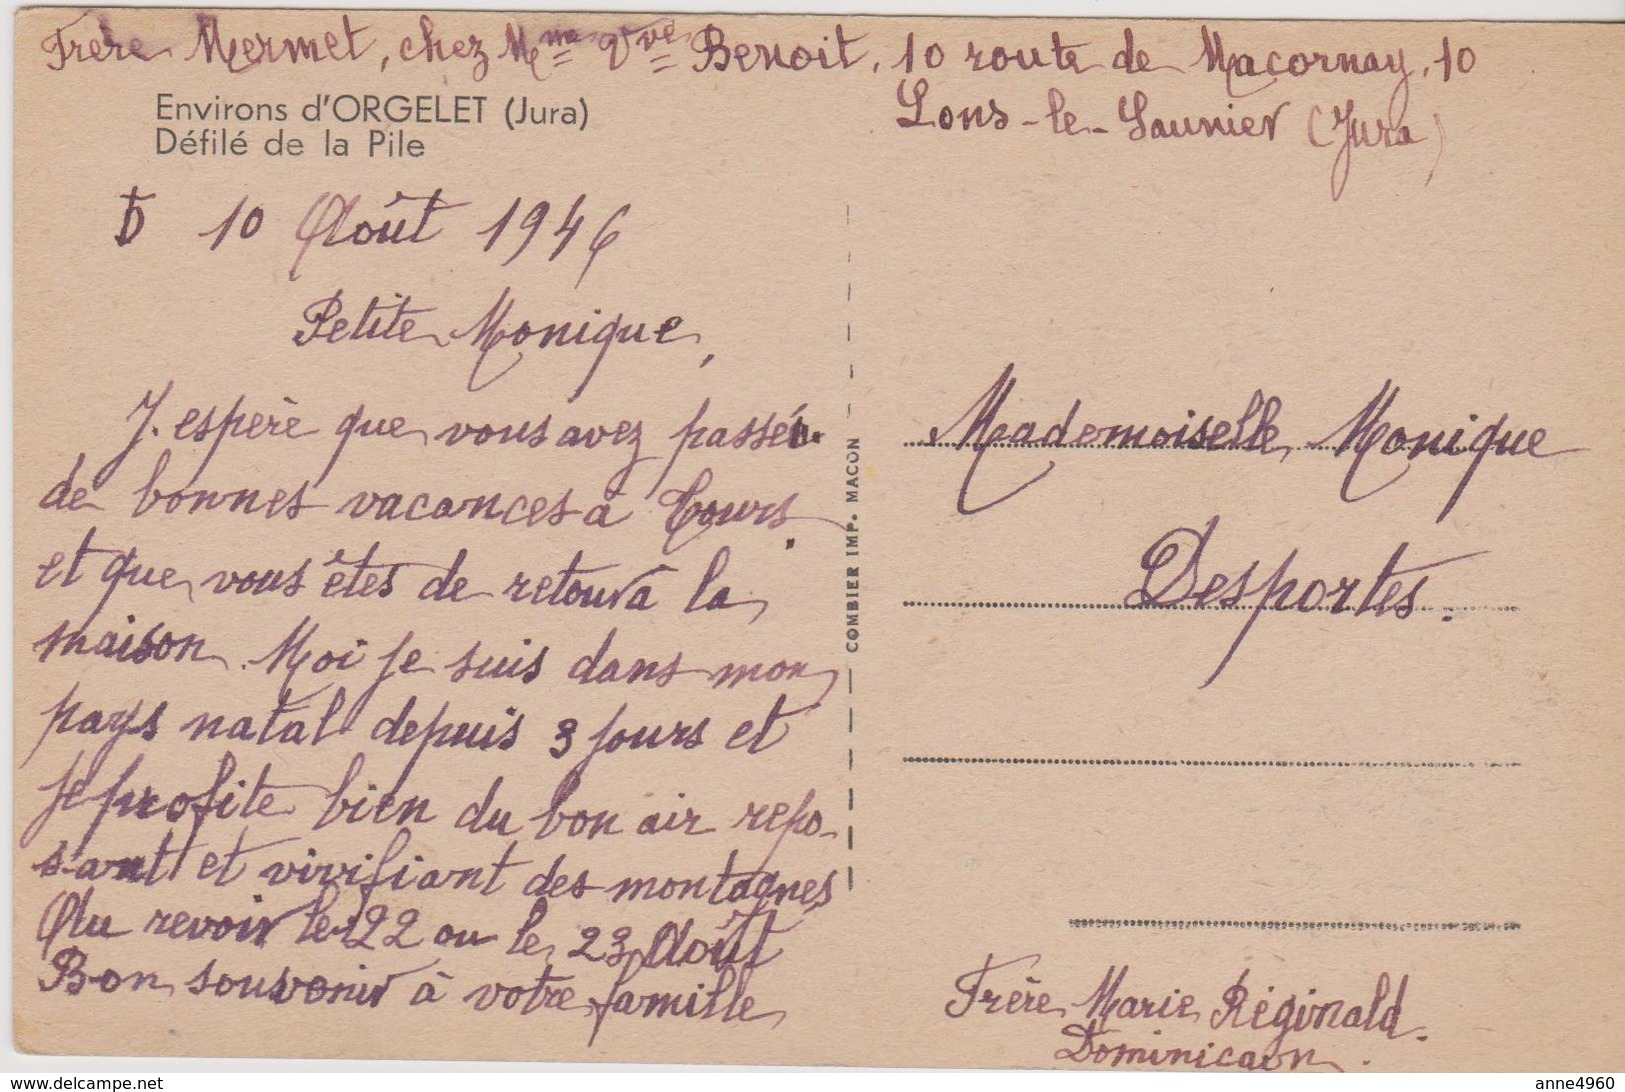 Frère Mermet, chez Mme Vve Benoit, 10 route de Macornay, 10
Lons-le-Saunier (Jura)
Environs d'ORGELET (Jura)
Défilé de la Pile
10 Août 1946
Petite Monique,
J'espère que vous avez passé
de bonnes vacances à Tours.
et que vous êtes de retour à la
maison. Moi je suis dans mon
pays natal depuis 3 jours et
je profite bien du bon air repo-
sant et vivifiant des montagnes
Au revoir le 22 ou le 23 Août
Bon souvenir à votre famille
COMBIER IMP. MACON
Mademoiselle Monique
Desportes.
Frère Marie Réginald.
Dominicain.
www.delcampe.net
anne4960